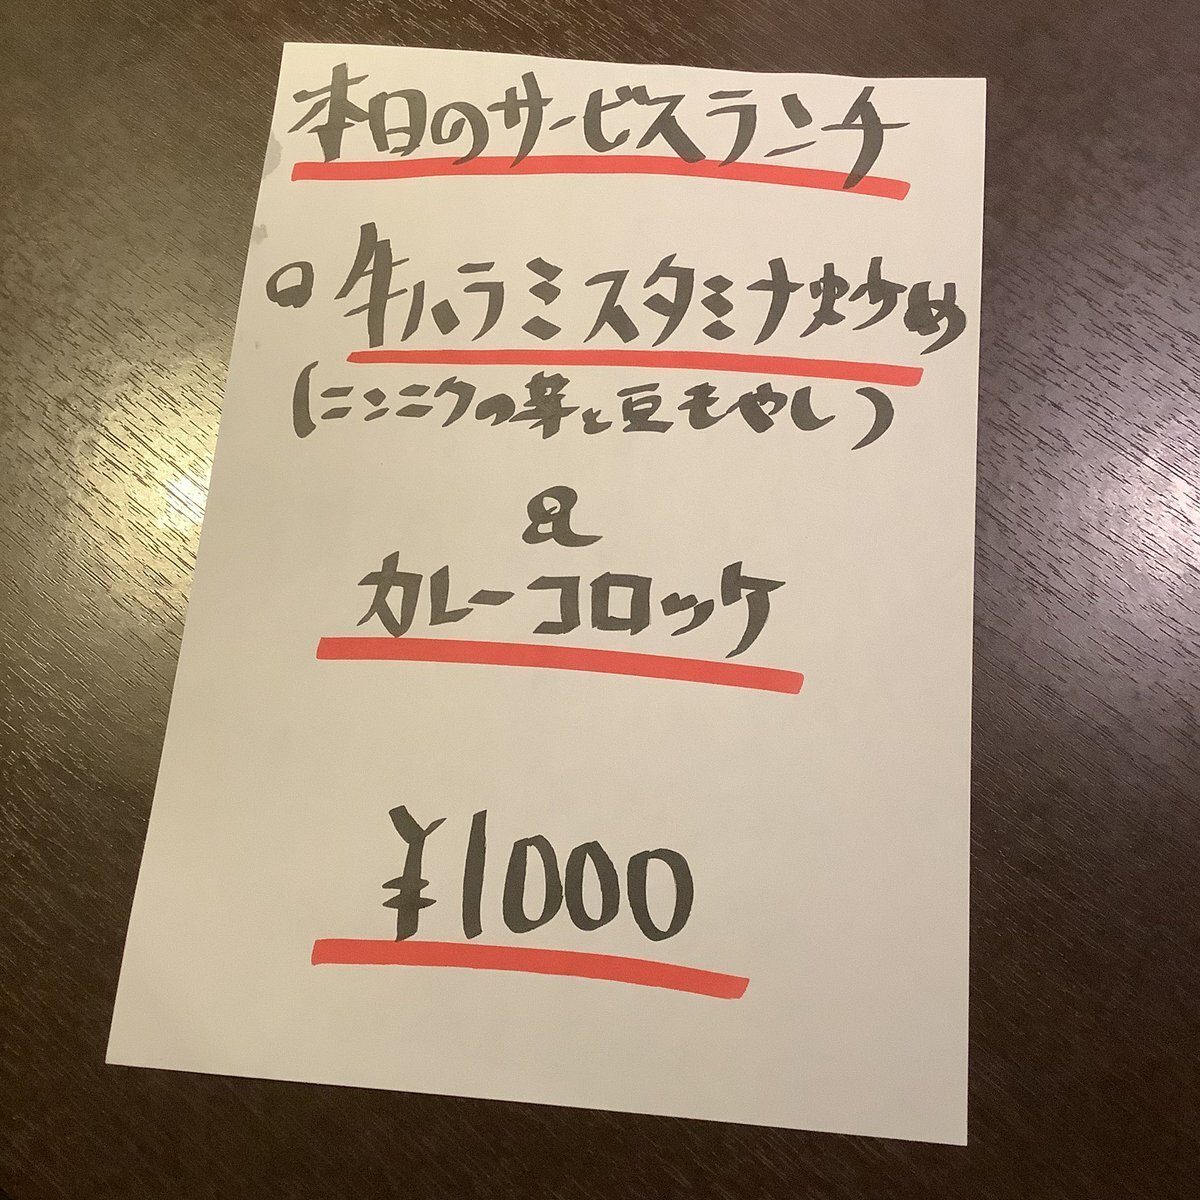 本日のサービスランチ
○ 牛ハラミスタミナ炒め
(ニンニクの芽と豆もやし)
&
カレーコロッケ
¥1000